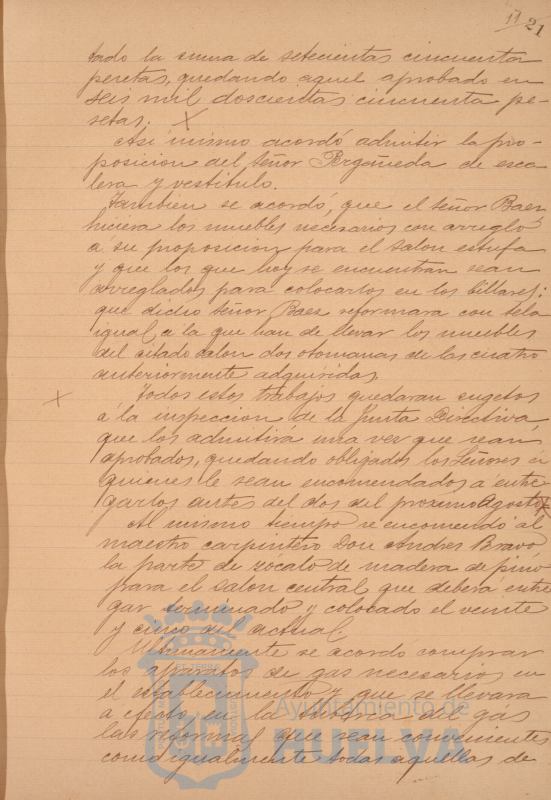 11 21
tado la suma de setecientas cincuenta
pesetas, quedando aquel aprobado en
seis mil doscientas cincuenta pe-
setas.
Asi mismo acordó admitir la pro-
posicion del Señor de esca
lera y vestibulo.
Tambien se acordó, que el señor Baez
hiciera los muebles necesarios con arreglo
á su proposicion para el salon estufa
y que los que hoy se encuentran sean
arreglados para colocarlos en los billares;
que dicho señor Baez reformara con tela
igual á la que han de llevar los muebles
del citado salon dos otomanas de las cuatro
anteriormente adquiridas.
Todos estos trabajos quedaran sugetos
á la inspeccion de la Junta Directiva,
que los admitirá una vez que sean
aprobados, quedando obligados los Señores á
quienes le sean encomendados a entre
garlos antes del dos del proximo Agosto
Al mismo tiempo se encomendó al
maestro carpintero Don Andres Bravo
la parte de zócalo de madera de pino
para el salon central que deberá entre
gar terminado y colocado el veinte
y cinco del actual.
Ultimamente se acordó comprar
los aparatos de gas necesarios en
el establecimiento y que se llevara
a efecto en la tuberia del gas
las reformas que sean convenientes
como igualmente todas aquellas de
Ayuntamiento de
HUELVA